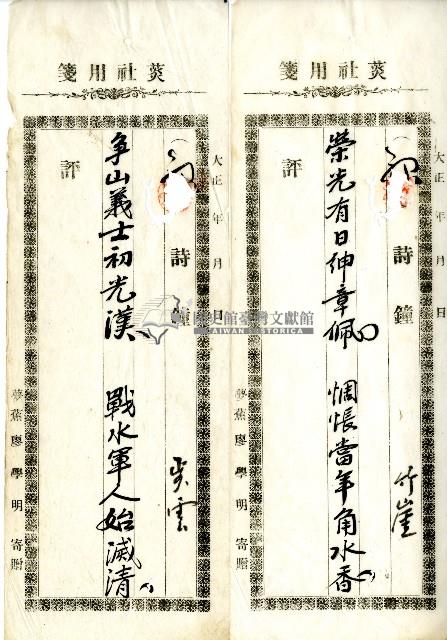 箋用社莢
大正 年 月 日
詩鐘
評
榮光有日紳章佩 惆悵當年角水香
竹崖
夢蕉廖學明寄贈
箋用社莢
大正 年 月 日
詩鐘
評
爭山義士初光漢 戰水軍人始滅清
夢蕉廖學明寄贈
史館臺灣文獻館
TAIWAN HISTORICA